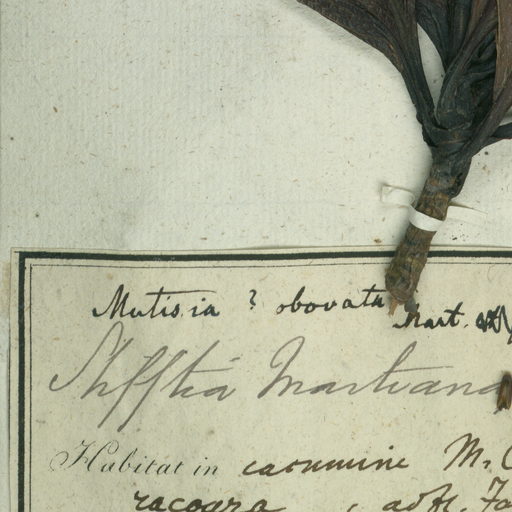 Mutisia ? obovata Mart.
Stifftia Martiana
Habitat in cacumine M.
racogra, adft.